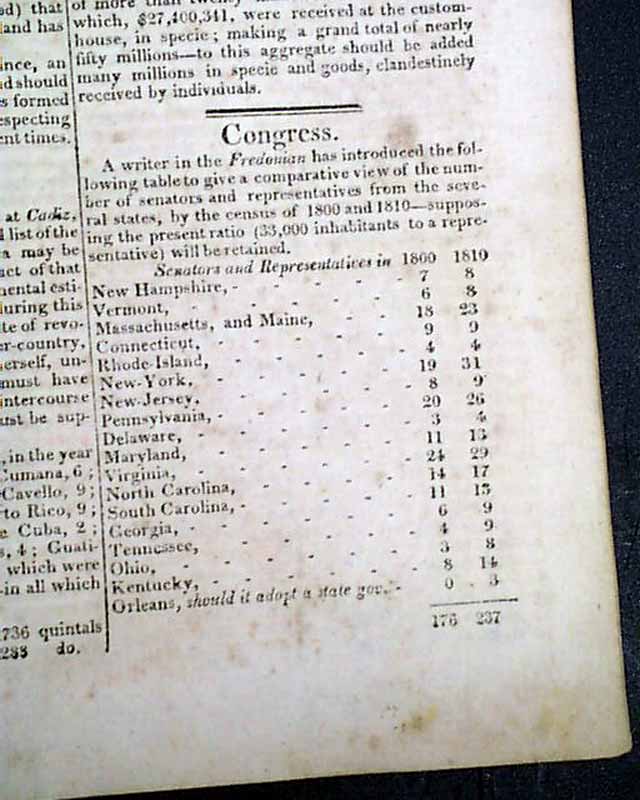 ed) that
and has
nce, an
d should
s formed
especting
ent times.
at Cadiz,
list of the
a may be
act of that
mental esti-
during this
te of revo-
er-country,
erself, un-
must have
intercourse
ust be sup-
, in the year
Cumana, 6 ;
Cavello, 9 ;
to Rico, 9 ;
e Cuba, 2 ;
s, 4 ; Guati-
which were
-in all which
736 quintals
288 do.
of more than twenty
which, $27,400,341, were received at the custom-
house, in specie ; making a grand total of nearly
fifty millions—to this aggregate should be added
many millions in specie and goods, clandestinely
received by individuals.
Congress.
A writer in the Fredonian has introduced the fol-
lowing table to give a comparative view of the num-
ber of senators and representatives from the seve-
ral states, by the census of 1800 and 1810—suppos-
ing the present ratio (33,000 inhabitants to a repre-
sentative) will be retained.
Senators and Representatives in 1800 1810
New Hampshire, - - - - 7 8
Vermont, - - - - 6 8
Massachusetts, and Maine, - - - 18 23
Connecticut, - - - - 9 9
Rhode-Island, - - - - 4 4
New-York, - - - - 19 31
New-Jersey, - - - - 8 9
Pennsylvania, - - - - 20 26
Delaware, - - - - 3 4
Maryland, - - - - 11 13
Virginia, - - - - 24 29
North Carolina, - - - - 14 17
South Carolina, - - - - 11 13
Georgia, - - - - 6 9
Tennessee, - - - - 4 9
Ohio, - - - - 3 8
Kentucky, - - - - 8 14
Orleans, should it adopt a state gov. - 0 3
176 237